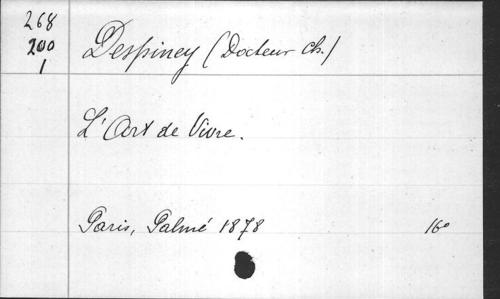 268
200
1
Despiney (Docteur Ch.)
L'Art de Vivre.
Paris, Palmé 1878 16°